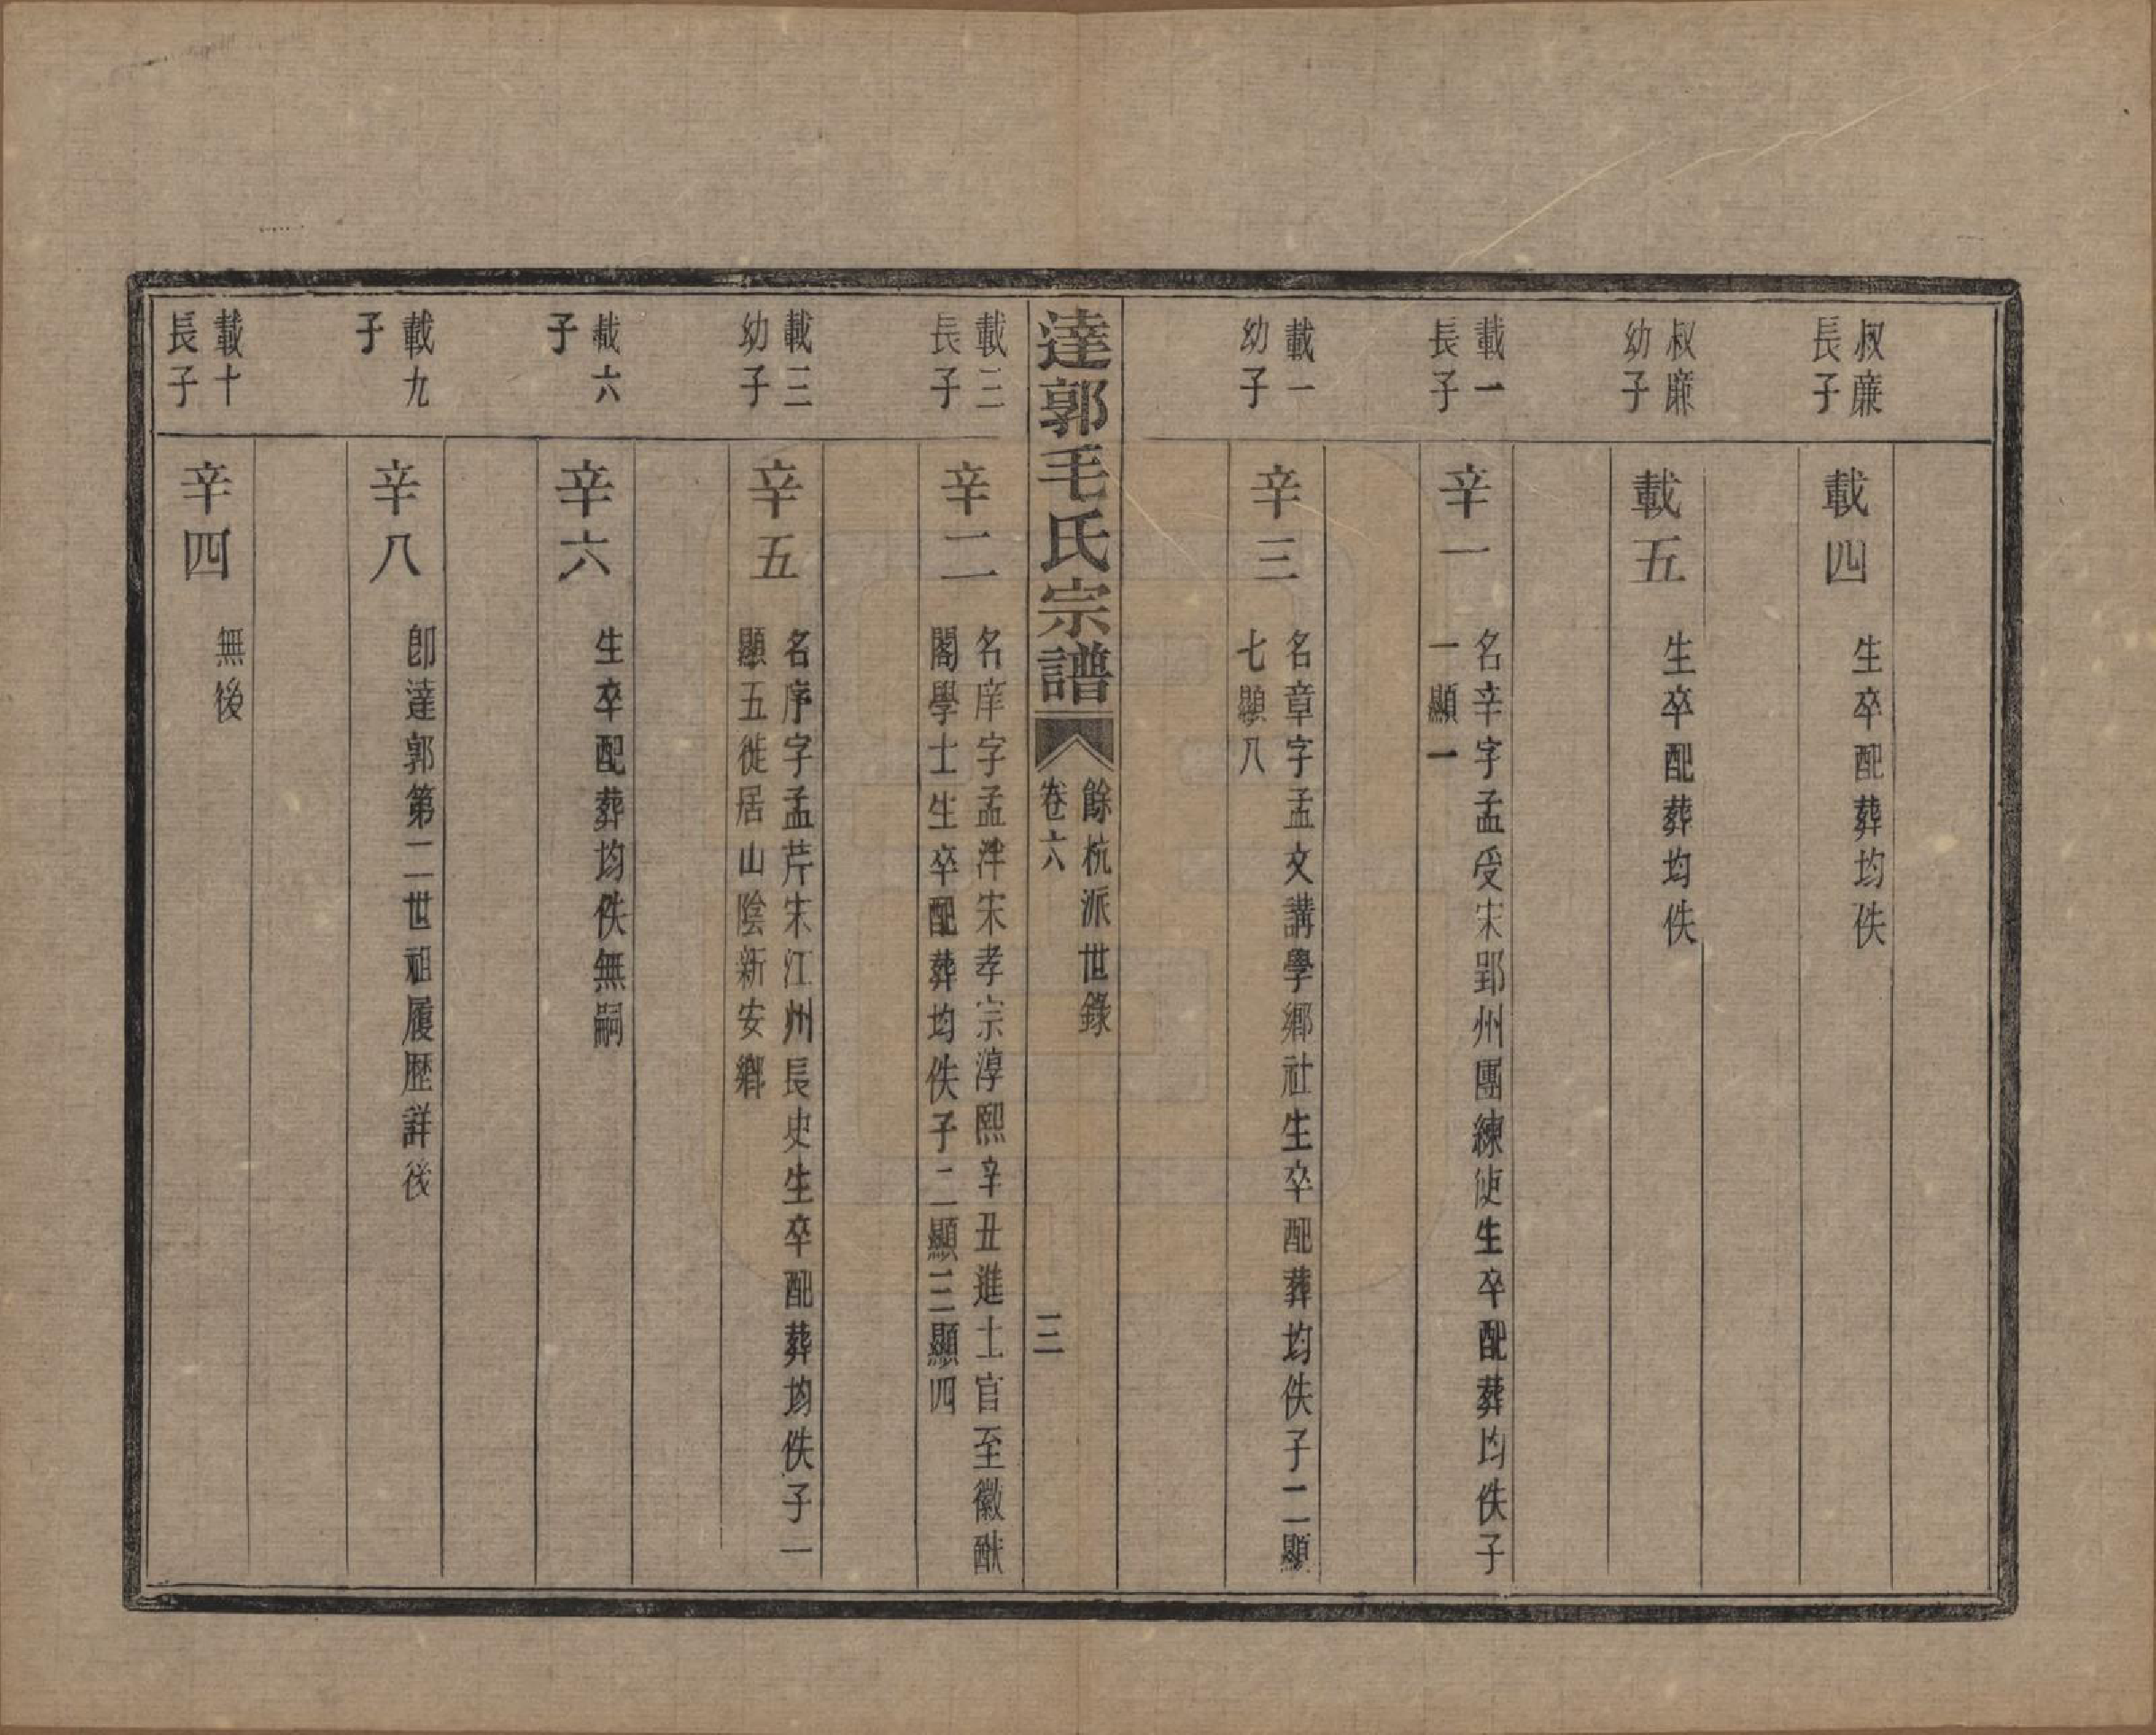 叔廉
長子
載四
生卒配葬均佚
叔廉
幼子
載五
生卒配葬均佚
載一
長子
辛一
名辛字孟受宋郢州團練使生卒配葬均佚子
一顯一
載一
幼子
辛三
名章字孟文講學鄉社生卒配葬均佚子二顯
七顯八
達郭毛氏宗譜
餘杭派世錄
卷六
三
載三
長子
辛二
名庠字孟泮宋孝宗淳熙辛丑進士官至徽猷
閣學士生卒配葬均佚子二顯三顯四
載三
幼子
辛五
名序字孟芹宋江州長史生卒配葬均佚子一
顯五徙居山陰新安鄉
載六
子
辛六
生卒配葬均佚無嗣
載九
子
辛八
卽達郭第二世祖履歷詳後
載十
長子
辛四
無後